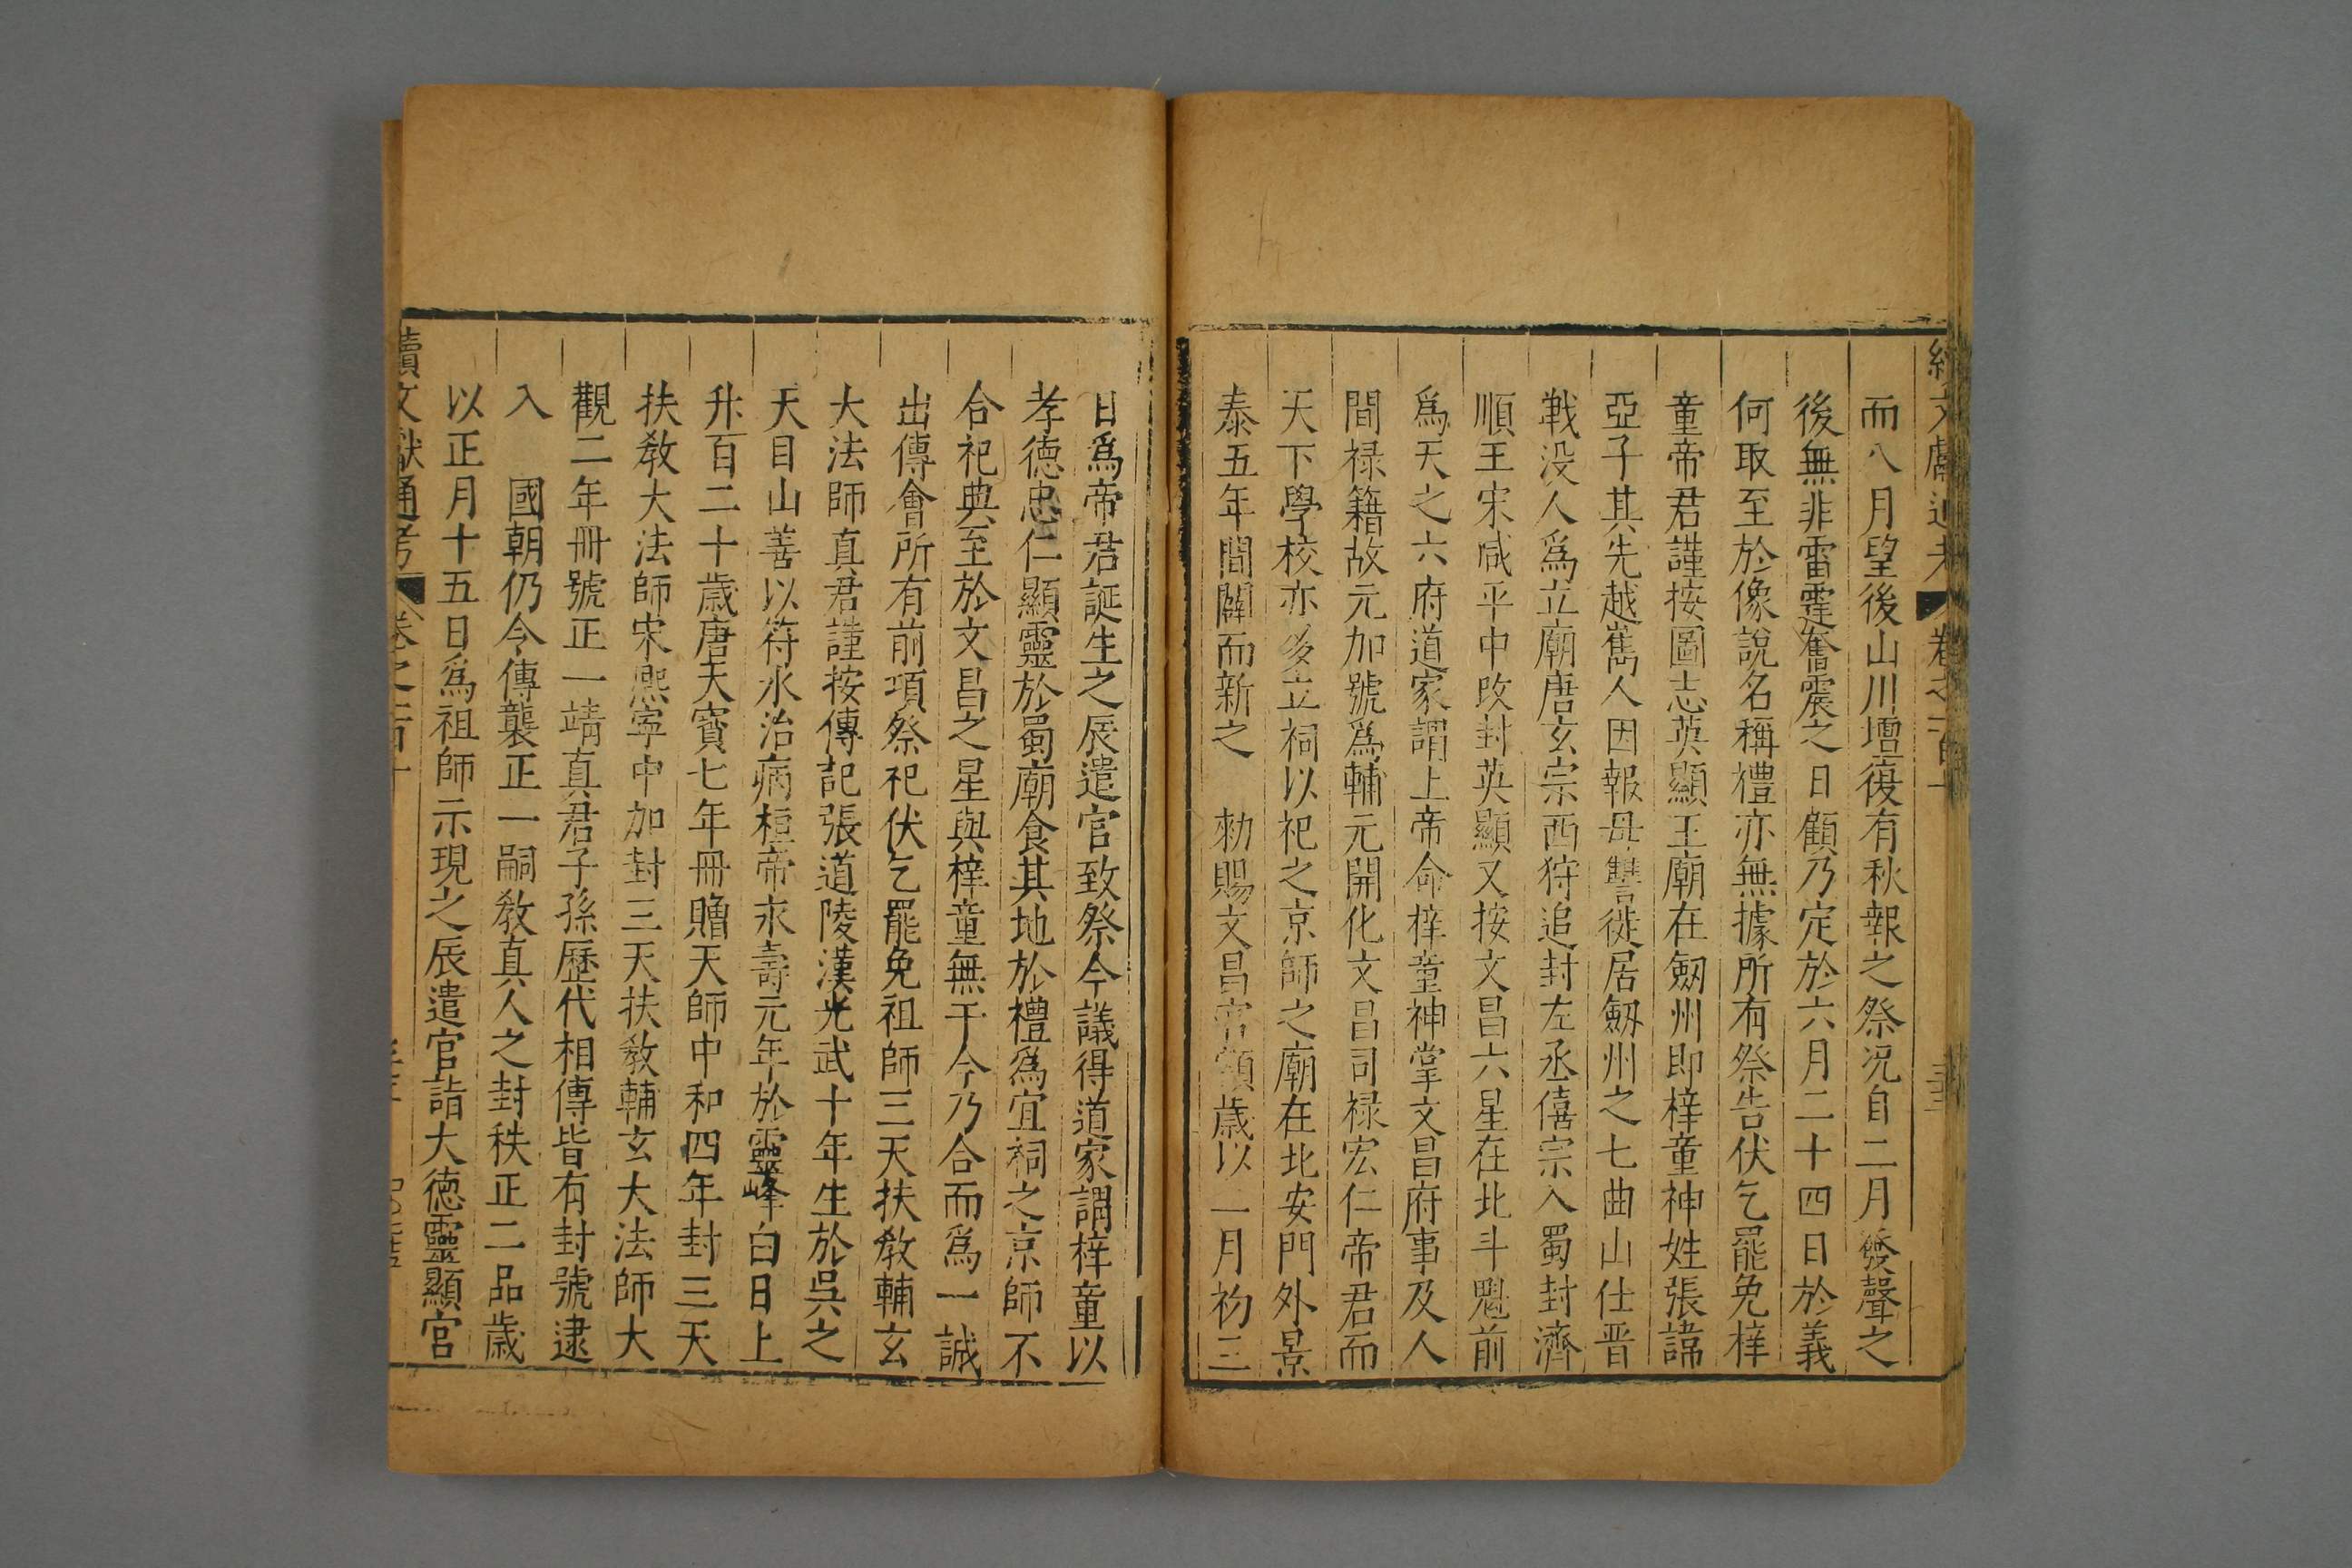 續文獻通考 卷之一百十
而八月望後山川壇復有秋報之祭況自二月發聲之
後無非雷霆奮震之日顧乃定於六月二十四日於義
何取至於像說名稱禮亦無據所有祭告伏乞罷免梓
童帝君謹按圖志英顯王廟在劒州即梓童神姓張諱
亞子其先越嶲人因報母讐徙居劒州之七曲山仕晋
戰没人爲立廟唐玄宗西狩追封左丞僖宗入蜀封濟
順王宋咸平中改封英顯又按文昌六星在北斗魁前
爲天之六府道家謂上帝命梓童神掌文昌府事及人
間禄籍故元加號爲輔元開化文昌司禄宏仁帝君而
天下學校亦多立祠以祀之京師之廟在北安門外景
泰五年間闢而新之 勑賜文昌宫額歲以二月初三
日爲帝君誕生之辰遣官致祭今議得道家謂梓童以
孝德忠仁顯靈於蜀廟食其地於禮爲宜祠之京師不
合祀典至於文昌之星與梓童無干今乃合而爲一誠
出傳會所有前項祭祀伏乞罷免祖師三天扶教輔玄
大法師真君謹按傳記張道陵漢光武十年生於吳之
天目山善以符水治病桓帝永壽元年於靈峰白日上
升百二十歲唐天寳七年冊贈天師中和四年封三天
扶教大法師宋熙寧中加封三天扶教輔玄大法師大
觀二年冊號正一靖真君子孫歷代相傳皆有封號逮
入 國朝仍令傳襲正一嗣教真人之封秩正二品歲
以正月十五日爲祖師示現之辰遣官詣大徳靈顯宫
續文獻通考 卷之一百十